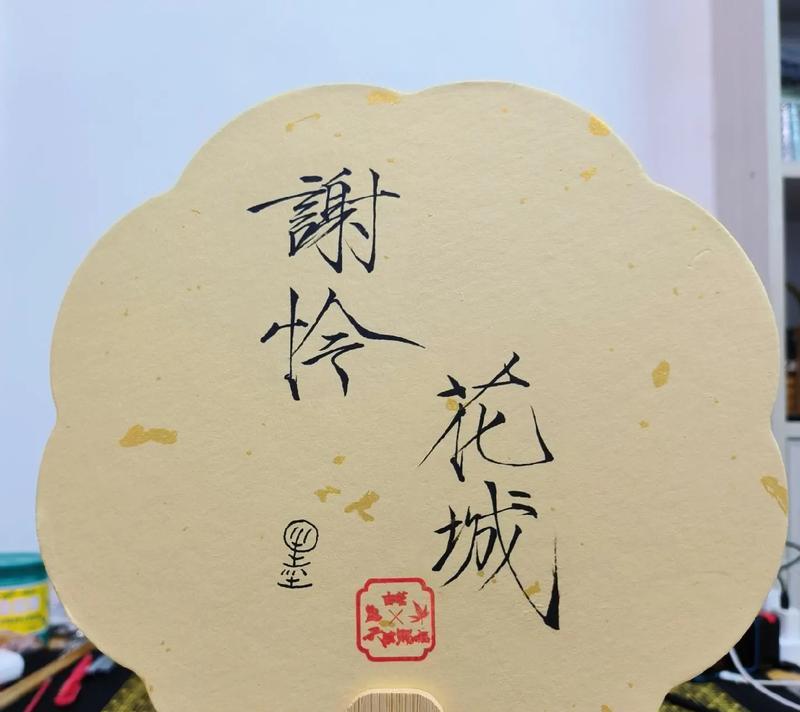 謝怜
花城